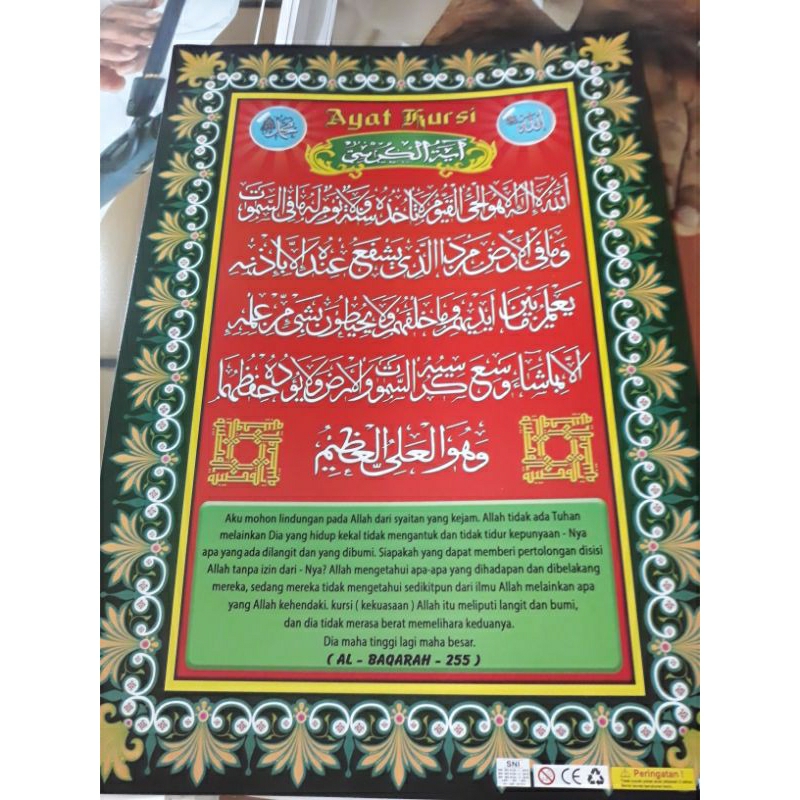 Ayat Kursi
محمد
الله
آية الكرسي
الله لا اله الا هو الحي القيوم لا تأخذه سنة ولا نوم له ما في السموت
وما في الارض من ذا الذي يشفع عنده الا باذنه
يعلم ما بين ايديهم وما خلفهم ولا يحيطون بشئ من علمه
الا بما شاء وسع كرسيه السموت والارض ولا يؤده حفظهما
وهو العلي العظيم
Aku mohon lindungan pada Allah dari syaitan yang kejam. Allah tidak ada Tuhan
melainkan Dia yang hidup kekal tidak mengantuk dan tidak tidur kepunyaan - Nya
apa yang ada dilangit dan yang dibumi. Siapakah yang dapat memberi pertolongan disisi
Allah tanpa izin dari - Nya? Allah mengetahui apa-apa yang dihadapan dan dibelakang
mereka, sedang mereka tidak mengetahui sedikitpun dari ilmu Allah melainkan apa
yang Allah kehendaki. kursi ( kekuasaan ) Allah itu meliputi langit dan bumi,
dan dia tidak merasa berat memelihara keduanya.
Dia maha tinggi lagi maha besar.
( AL - BAQARAH - 255 )
SNI
CE
Peringatan !